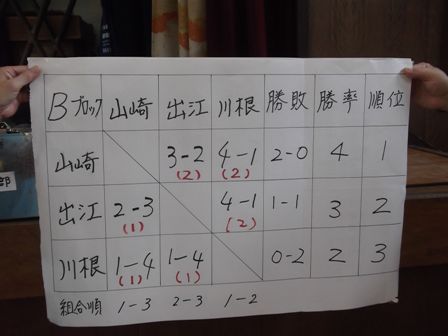 Bブロック 山崎 出江 川根 勝敗 勝率 順位
山崎 3-2 4-1 2-0 4 1
(2) (2)
出江 2-3 4-1 1-1 3 2
(1) (2)
川根 1-4 1-4 0-2 2 3
(1) (1)
組合順 1-3 2-3 1-2
部